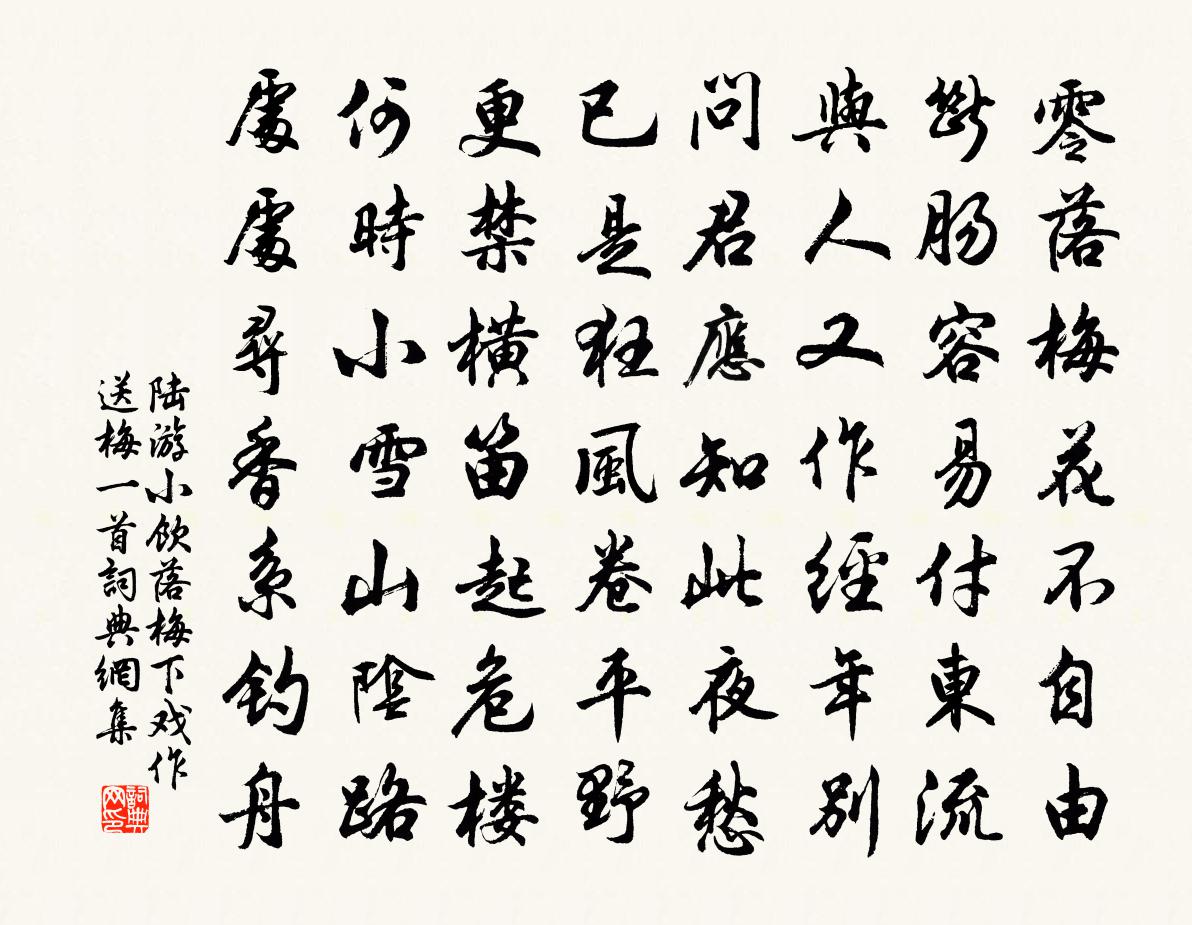 零落梅花不自由
斷肠容易付東流
與人又作經年別
問君應知此夜愁
已是狂風卷平野
更禁横笛起危楼
何時小雪山陰路
處處尋香系釣舟
陆游小飲落梅下戏作
送梅一首詞典網集
詞典
网印